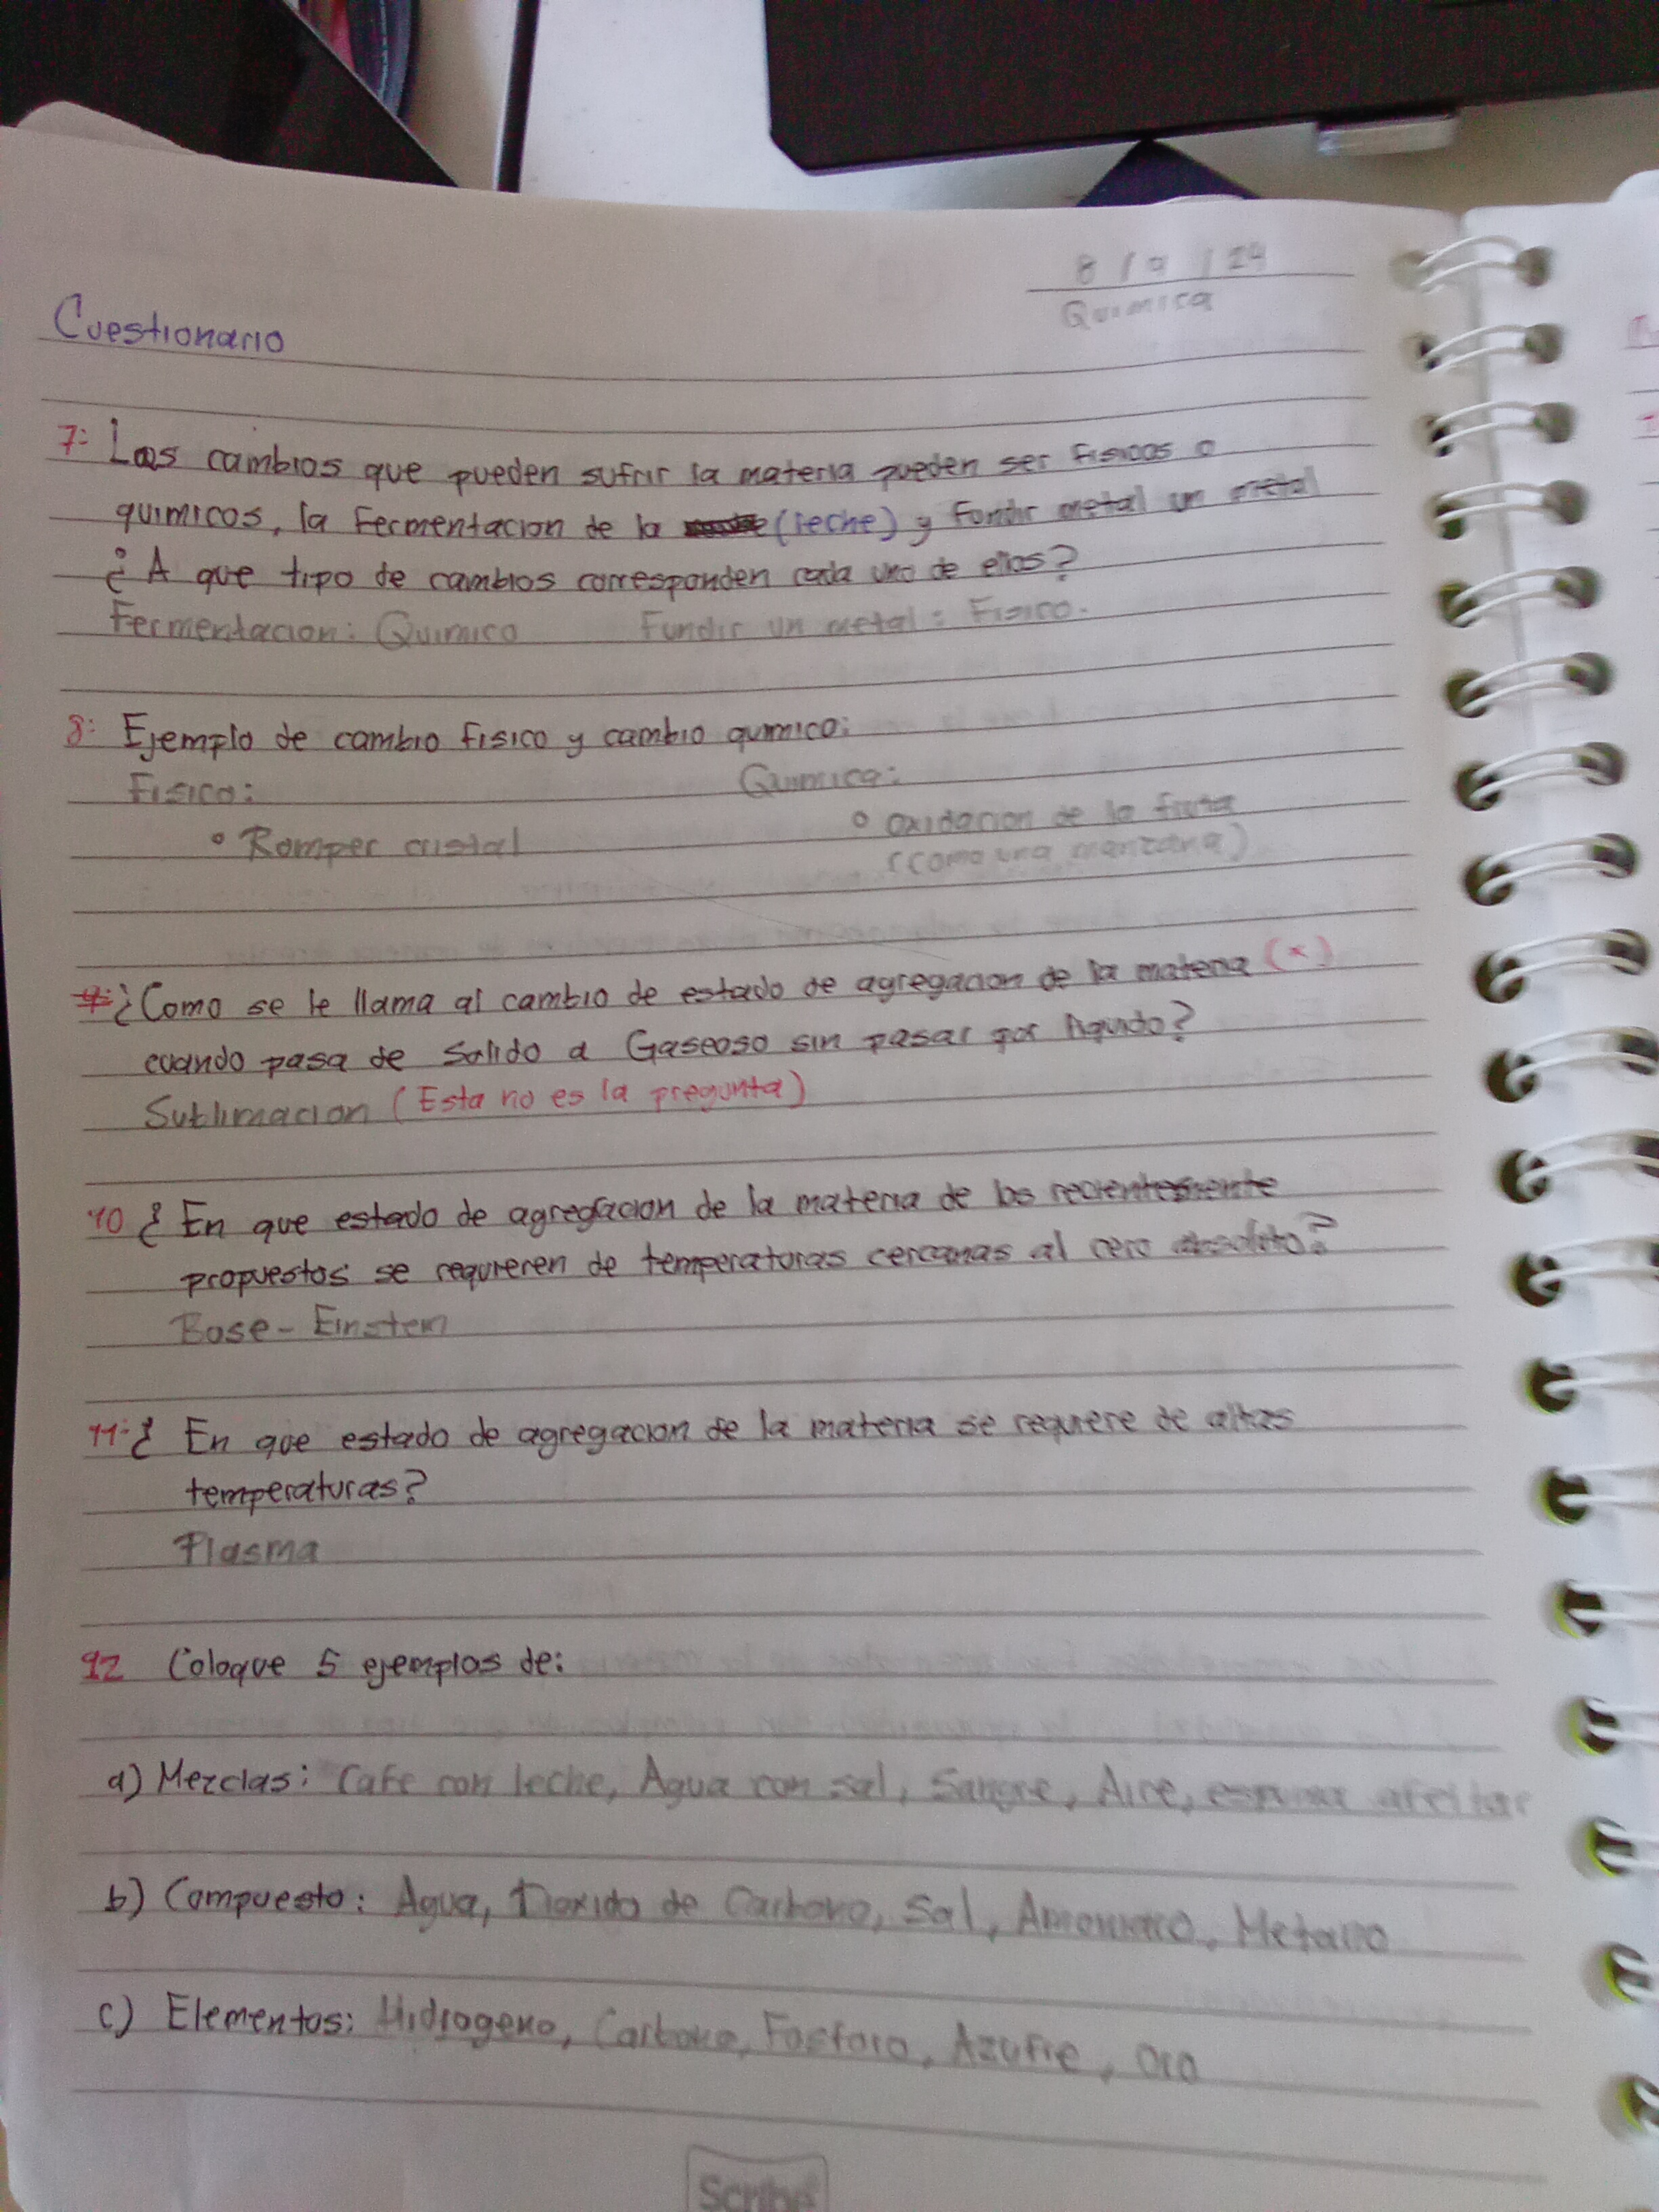 8 / 9 / 24
Quimica
Cuestionario
7: Los cambios que pueden sufrir la materia pueden ser fisicos o
quimicos, la Fermentacion de la (leche) y Fondir metal un metal
¿A que tipo de cambios corresponden cada uno de ellos?
Fermentacion: Quimico Fundir un metal: Fisico.
8: Ejemplo de cambio Fisico y cambio quimico:
Fisico: Quimica:
° Romper cristal ° oxidacion de la fruta
(como una manzana)
9: ¿Como se le llama al cambio de estado de agregacion de la materia (x)
cuando pasa de Solido a Gaseoso sin pasar por liquido?
Sublimacion (Esta no es la pregunta)
10 ¿ En que estado de agregacion de la materia de los recientemente
propuestos se requieren de temperaturas cercanas al cero absoluto?
Bose - Einstein
11-¿ En que estado de agregacion de la materia se requiere de altas
temperaturas?
Plasma
12 Coloque 5 ejemplos de:
a) Mezclas: Cafe con leche, Agua con sal, Sangre, Aire, espuma afeitar
b) Compuesto: Agua, Dioxido de Carbono, Sal, Amoniaco, Metano
c) Elementos: Hidrogeno, Carbono, Fosforo, Azufre, Oro
Scribe